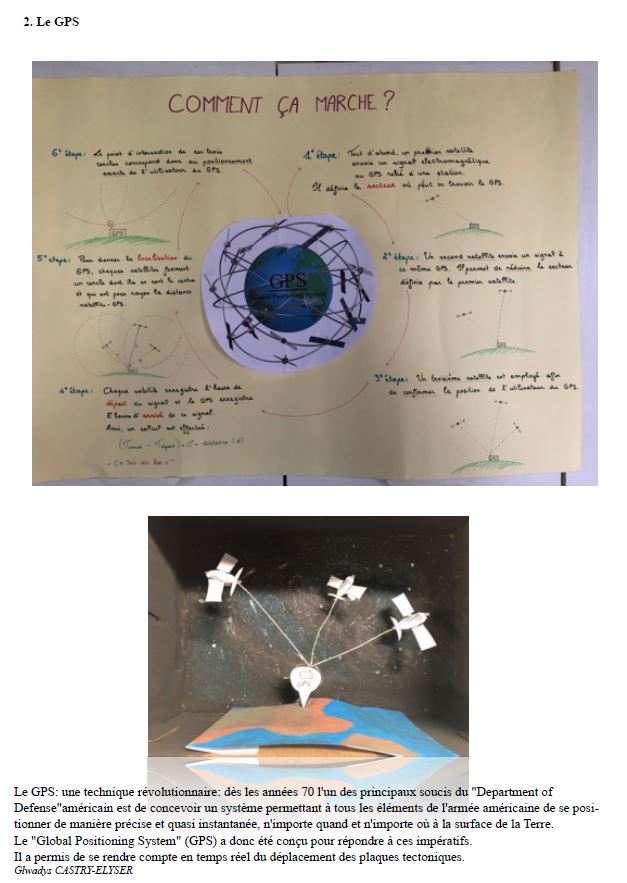 2. Le GPS
COMMENT ÇA MARCHE ?
1e étape: Tout d'abord, un premier satellite
envoie un signal électromagnétique
au GPS relié à une station.
Il définie le secteur où peut se trouver le GPS.
GPS
2e étape: Un second satellite envoie un signal à
ce même GPS. Il permet de réduire le secteur
définie par le premier satellite.
GPS
3e étape: Un troisième satellite est employé afin
de confirmer la position de l'utilisateur du GPS.
GPS
4e étape: Chaque satellite enregistre l'heure de
départ du signal et le GPS enregistre
l'heure d'arrivé de ce signal.
Ainsi, un calcul est effectué:
= distance (d)
5e étape: Pour donner la localisation du
GPS, chaques satellites forment
un cercle dont ils en sont le centre
et qui ont pour rayon la distance
satellite - GPS.
GPS
6e étape: Le point d'intersection de ces trois
cercles correspond donc au positionnement
exacte de l'utilisateur du GPS.
GPS
GPS
Global Positioning System
GPS
Le GPS: une technique révolutionnaire: dès les années 70 l'un des principaux soucis du "Department of
Defense"américain est de concevoir un système permettant à tous les éléments de l'armée américaine de se posi-
tionner de manière précise et quasi instantanée, n'importe quand et n'importe où à la surface de la Terre.
Le "Global Positioning System" (GPS) a donc été conçu pour répondre à ces impératifs.
Il a permis de se rendre compte en temps réel du déplacement des plaques tectoniques.
Glwadys CASTRY-ELYSER